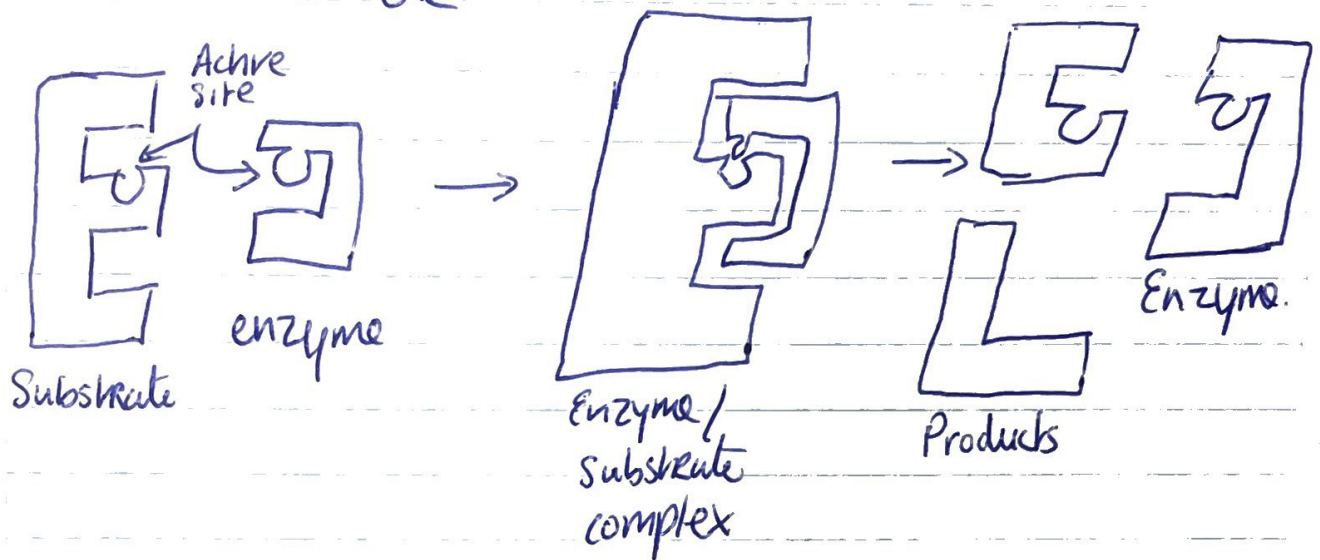 Active
site
enzyme
Substrate
Enzyme/
Substrate
complex
Products
Enzyme.